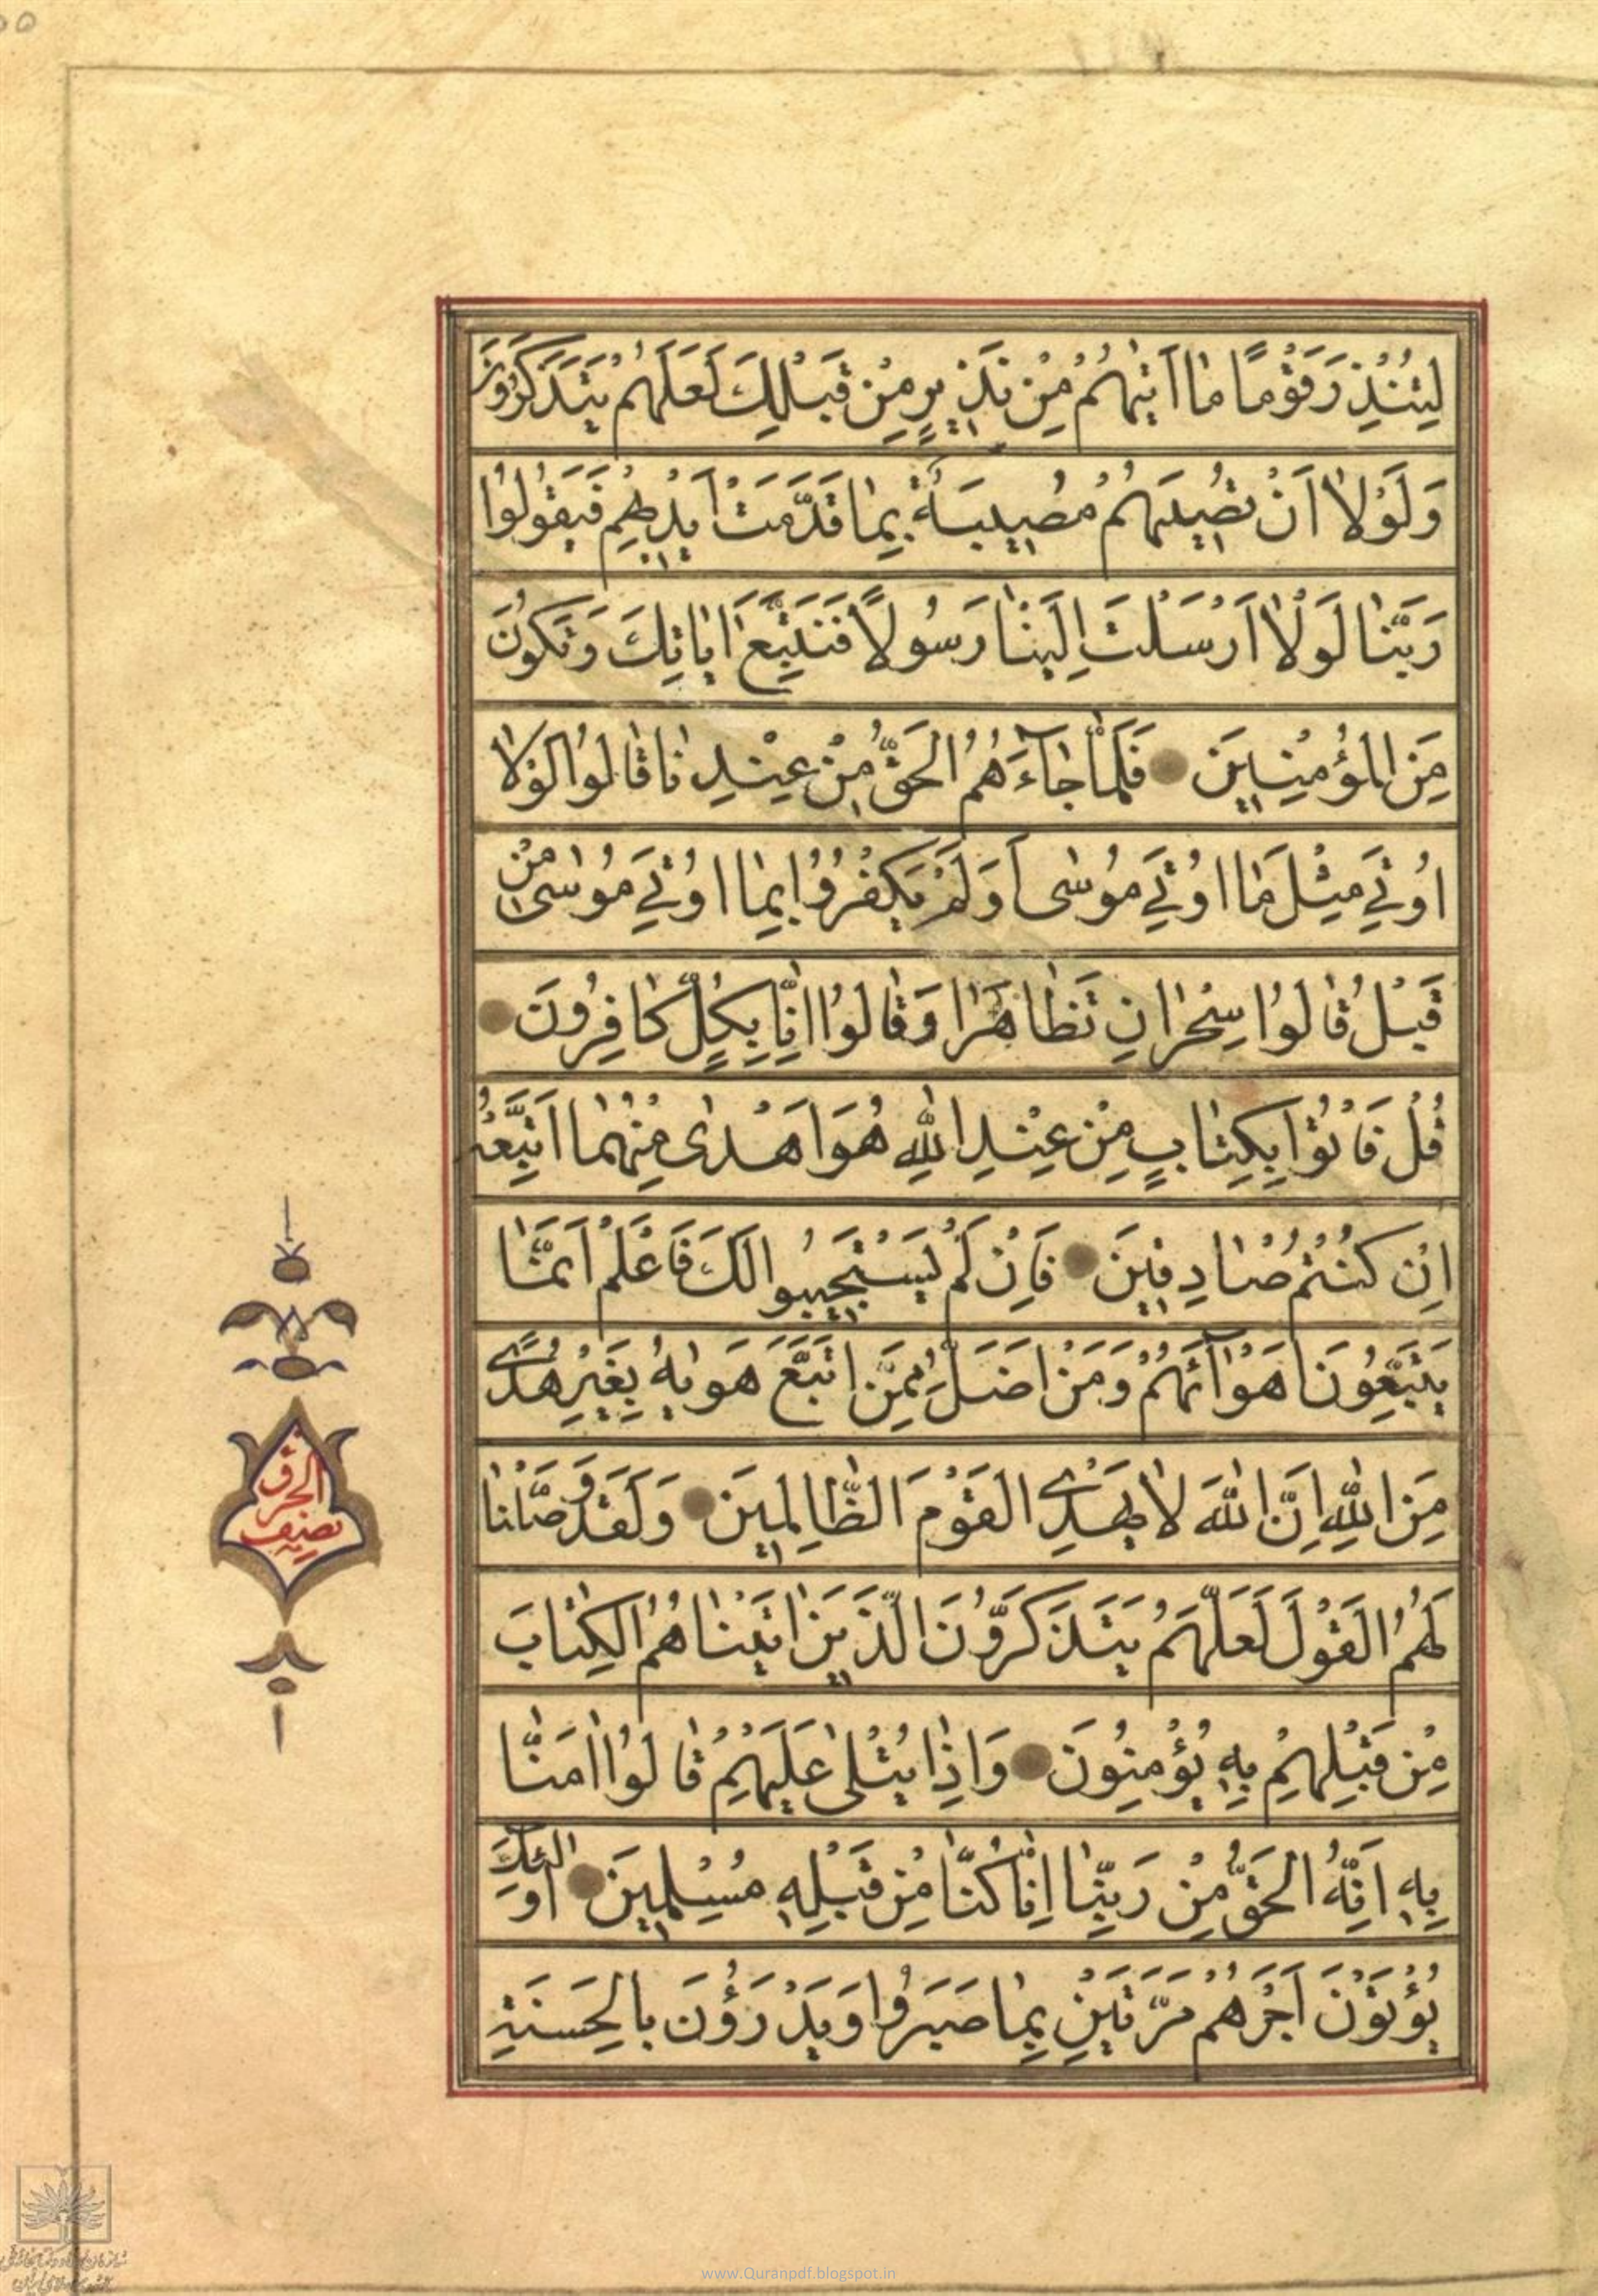 لِتُنْذِرَ قَوْمًا مٰا اَتٰیهُمْ مِنْ نَذٖیرٍ مِنْ قَبْلِكَ لَعَلَهُمْ یَتَذَكَّرُونَ
وَلَوْلٰا اَنْ تُصٖیبَهُمْ مُصٖیبَةٌ بِمٰا قَدَّمَتْ اَیْدٖیهِمْ فَیَقُولُوا
رَبَّنٰا لَوْلٰا اَرْسَلْتَ اِلَیْنٰا رَسُولًا فَنَتَّبِعَ اٰیٰاتِكَ وَنَكُونَ
مِنَ الْمُؤْمِنٖینَ فَلَمّٰا جٰآءَهُمُ الْحَقُّ مِنْ عِنْدِنٰا قٰالُوا لَوْلٰا
اُوتِیَ مِثْلَ مٰا اُوتِیَ مُوسٰی اَوَلَمْ یَكْفُرُوا بِمٰا اُوتِیَ مُوسٰی مِنْ
قَبْلُ قٰالُوا سِحْرٰانِ تَظٰاهَرٰا وَقٰالُوا اِنّٰا بِكُلٍّ كٰافِرُونَ
قُلْ فَاْتُوا بِكِتٰابٍ مِنْ عِنْدِ اللّٰهِ هُوَ اَهْدٰی مِنْهُمٰا اَتَّبِعْهُ
اِنْ كُنْتُمْ صٰادِقٖینَ فَاِنْ لَمْ یَسْتَجٖیبُوا لَكَ فَاعْلَمْ اَنَّمٰا
یَتَّبِعُونَ اَهْوٰآئَهُمْ وَمَنْ اَضَلُّ مِمَّنِ اتَّبَعَ هَوٰیهُ بِغَیْرِ هُدًی
مِنَ اللّٰهِ اِنَّ اللّٰهَ لٰا یَهْدِی الْقَوْمَ الظّٰالِمٖینَ وَلَقَدْ وَصَّلْنٰا
لَهُمُ الْقَوْلَ لَعَلَّهُمْ یَتَذَكَّرُونَ الَّذٖینَ اٰتَیْنٰاهُمُ الْكِتٰابَ
مِنْ قَبْلِهِمْ بِهٖ یُؤْمِنُونَ وَاِذٰا یُتْلٰی عَلَیْهِمْ قٰالُوا اٰمَنّٰا
بِهٖ اِنَّهُ الْحَقُّ مِنْ رَبِّنٰا اِنّٰا كُنّٰا مِنْ قَبْلِهٖ مُسْلِمٖینَ اُولٰٓئِكَ
یُؤْتَوْنَ اَجْرَهُمْ مَرَّتَیْنِ بِمٰا صَبَرُوا وَیَدْرَؤُنَ بِالْحَسَنَةِ
نصف
الحزب
www.Quranpdf.blogspot.in